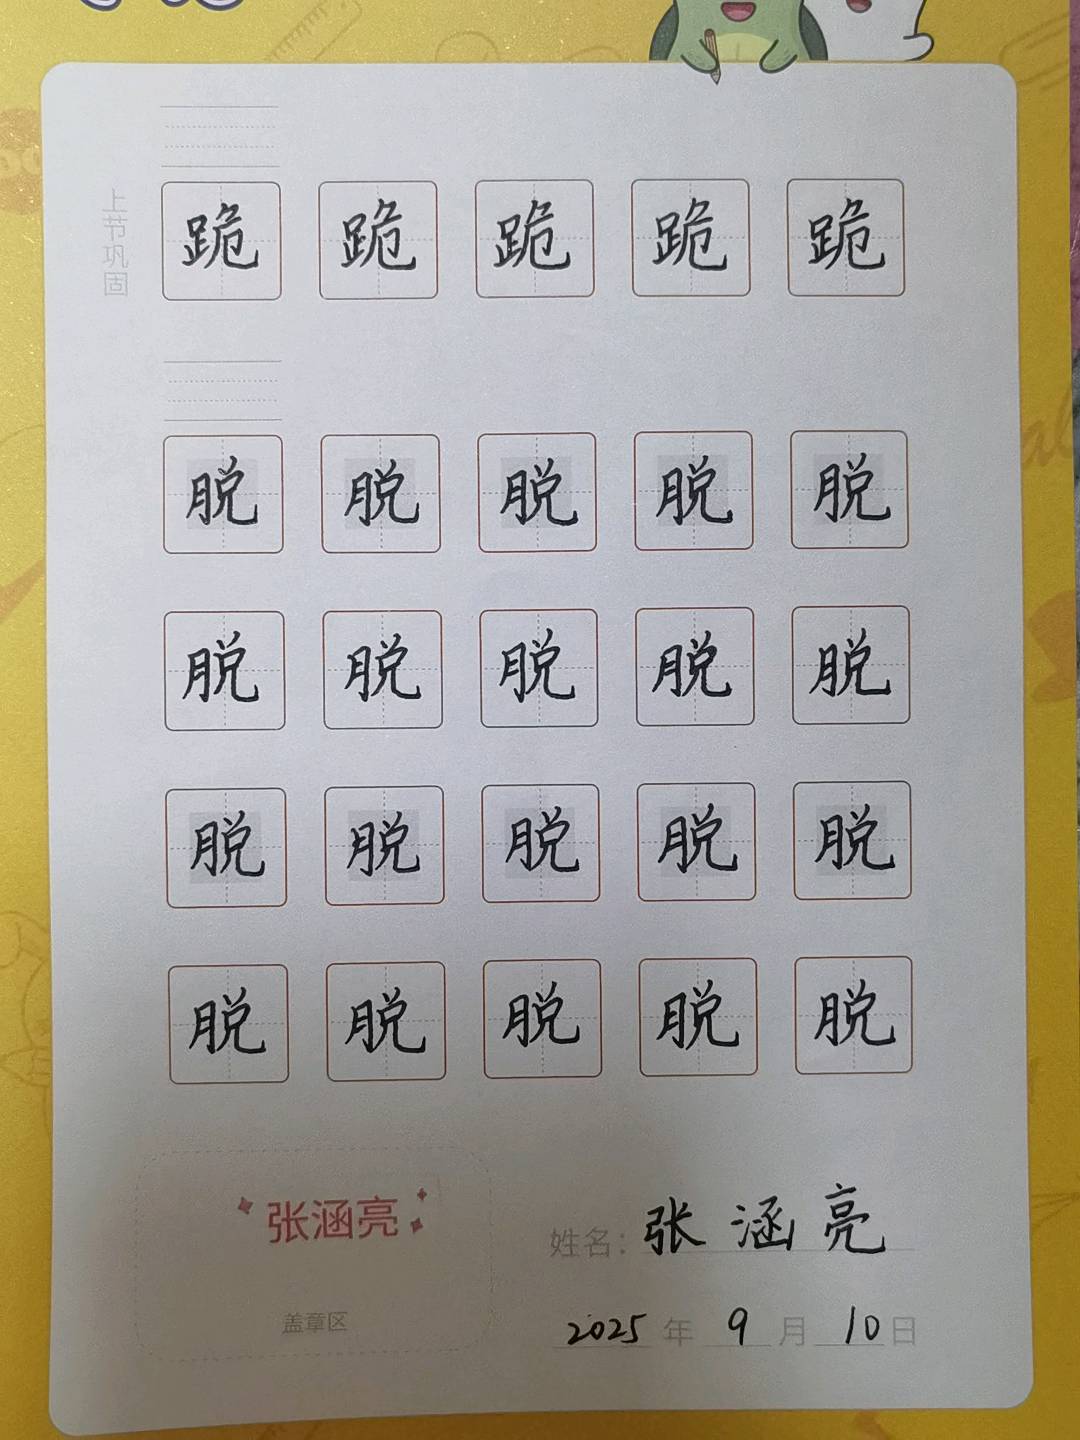 上节巩固
跪 跪 跪 跪 跪
脱 脱 脱 脱 脱
脱 脱 脱 脱 脱
脱 脱 脱 脱 脱
脱 脱 脱 脱 脱
张涵亮
盖章区
姓名：张涵亮
2025年9月10日